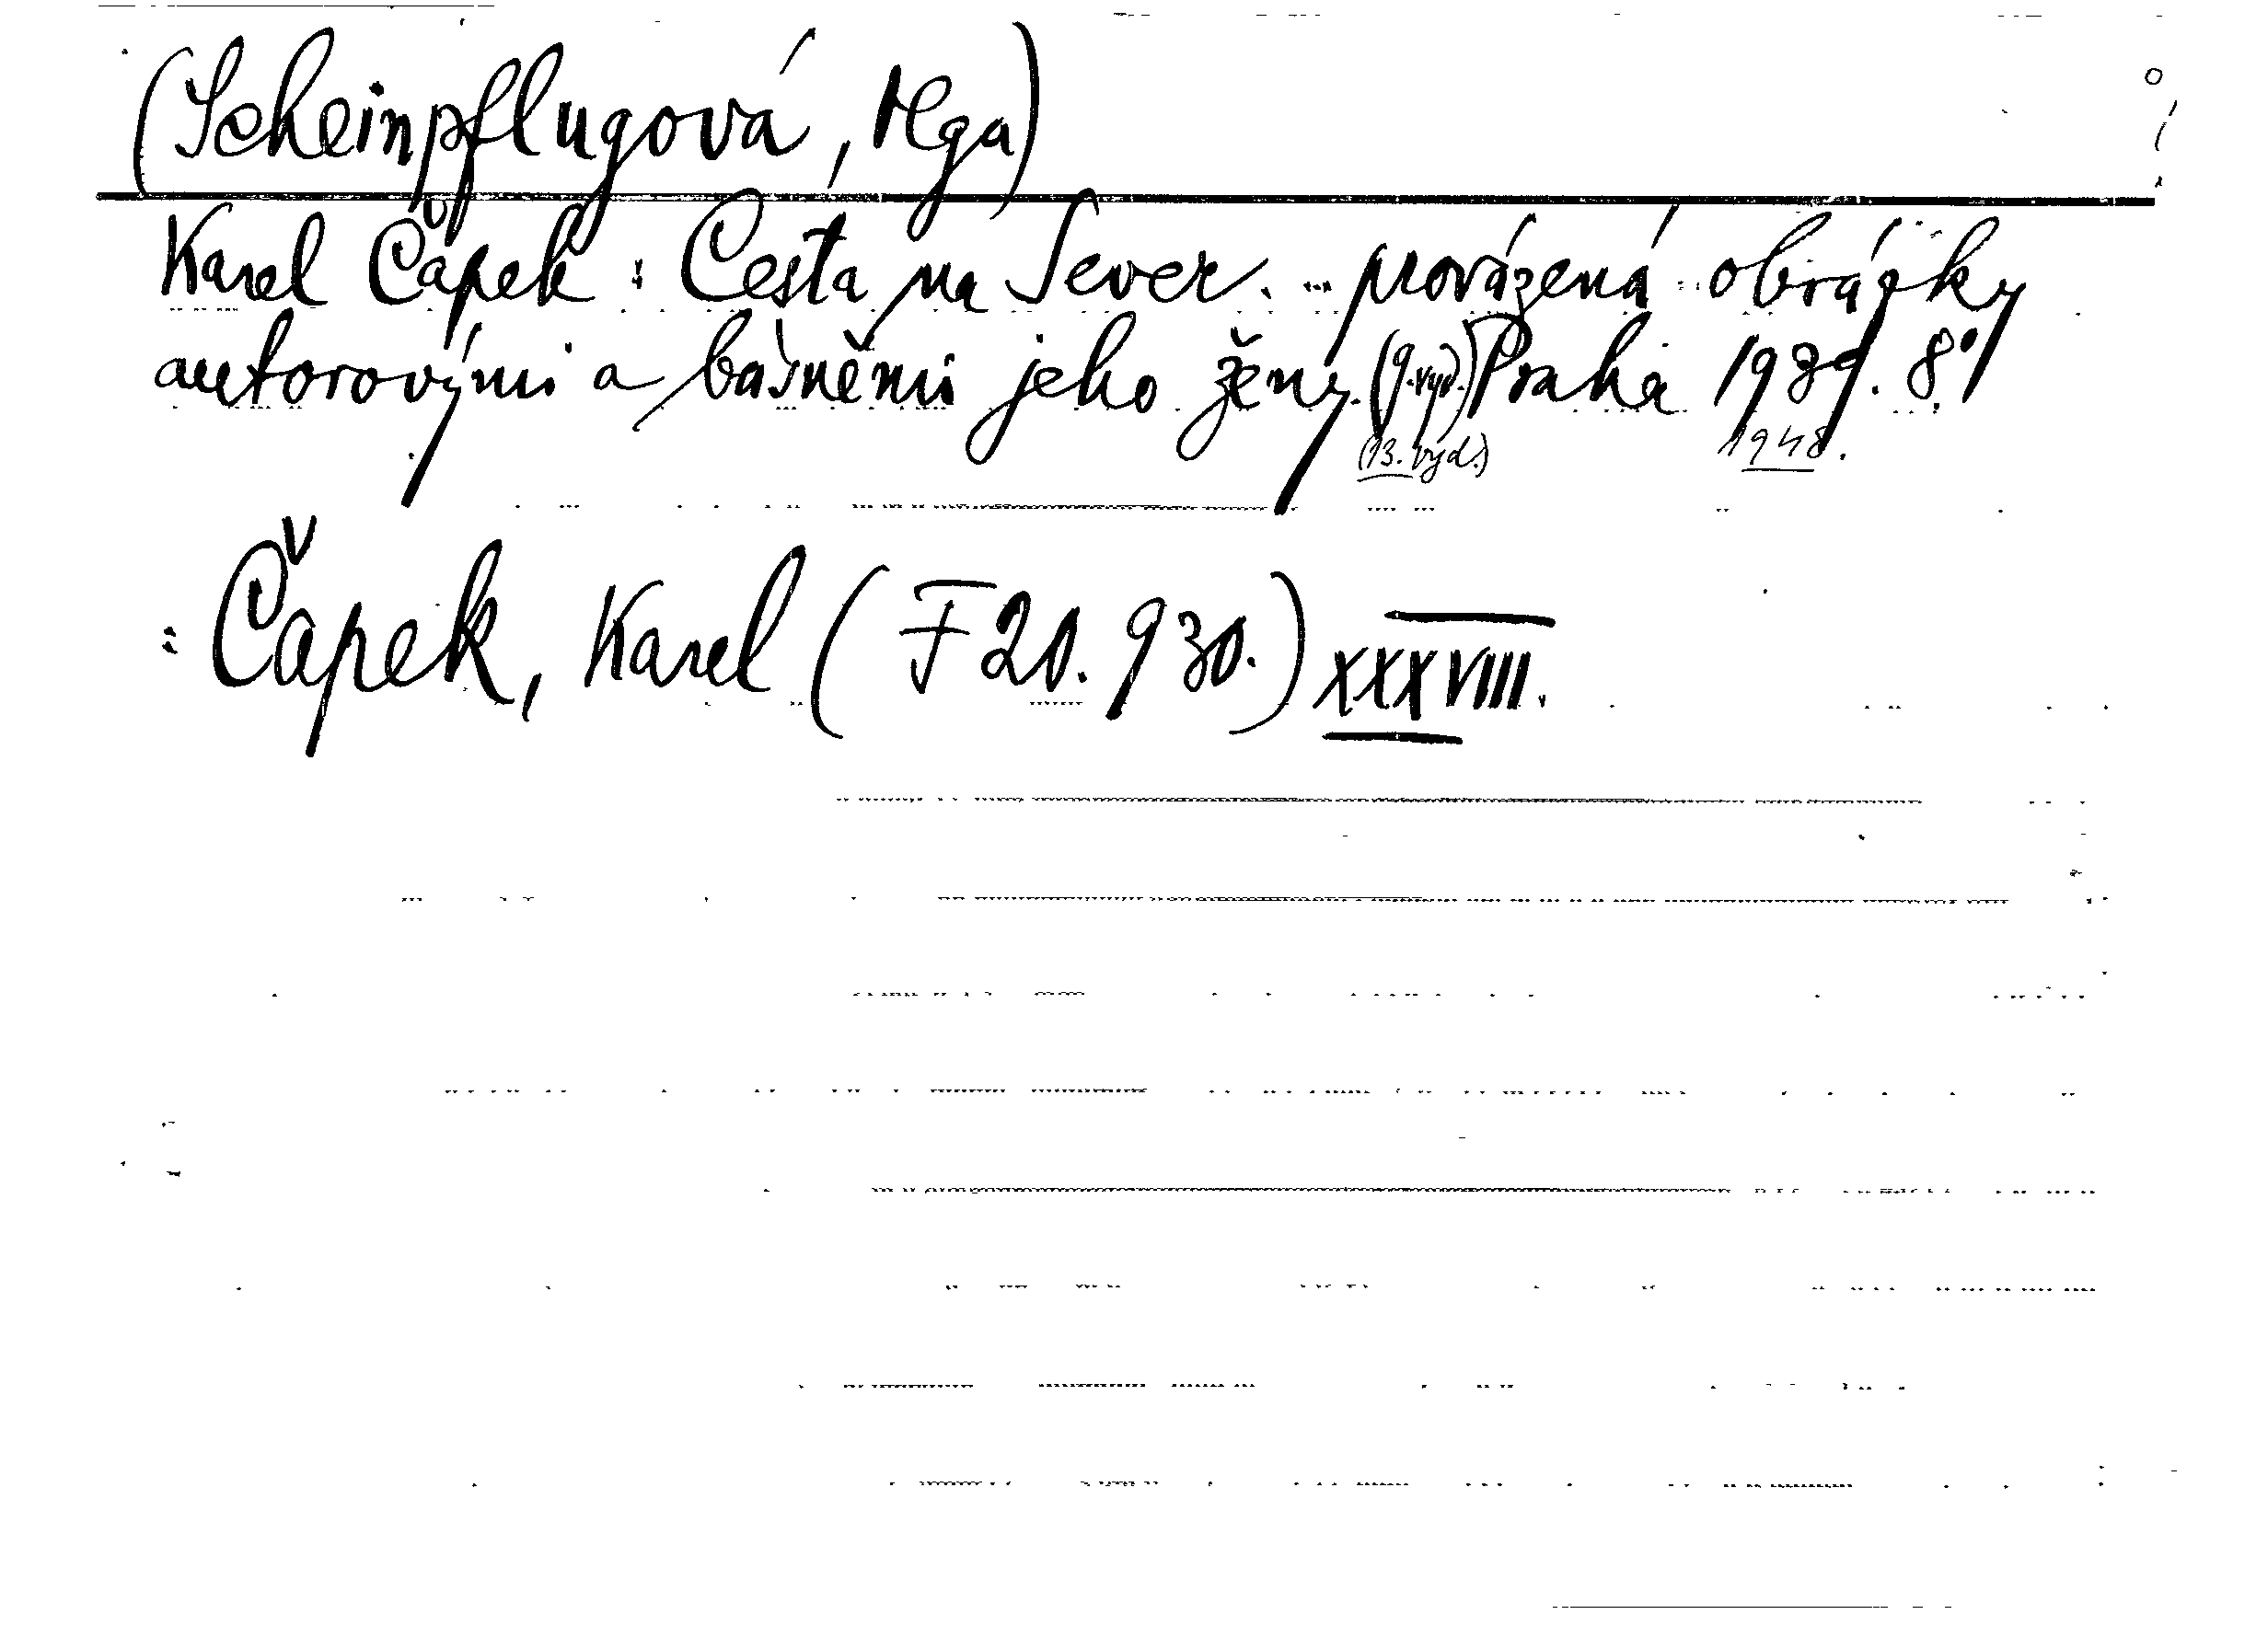 (Scheinpflugová, Olga)
Karel Čapek: Cesta na Sever. .. provázená obrázky
autorovými a básněmi jeho ženy. (9. vyd.) Praha 1939. 8°.
(13. vyd.) 1948.
= Čapek, Karel (F 20.930.) XXXVIII.